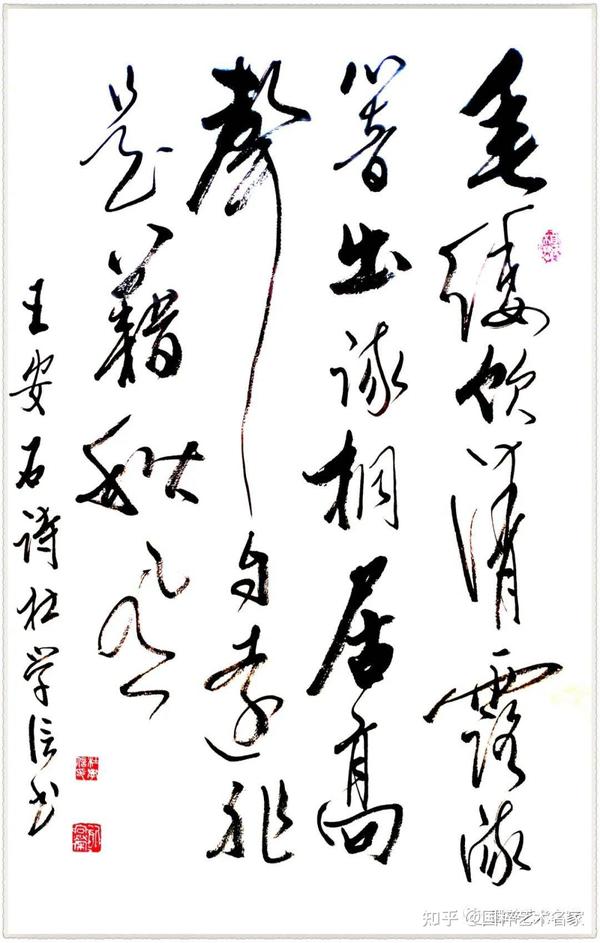 垂緌饮清露流
響出疏桐居高
聲自遠非
是藉秋風
王安石诗杜学信书
知乎 @国粹艺术名家